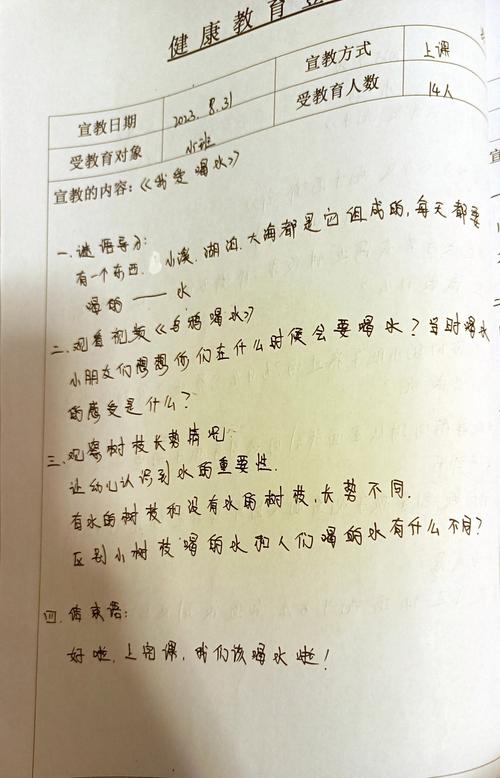 健康教育
宣教日期 2023.8.31 宣教方式 上课
受教育对象 小班 受教育人数 14人
宣教的内容:《我爱喝水》
一.谜语导引:
有一个东西. 小溪.湖泊.大海都是它组成的,每天都要
喝的——水
二.观看视频《乌鸦喝水》
小朋友们想想你们在什么时候会要喝水?当时喝水
的感受是什么?
三.观察树枝长势情况
让幼儿认识到水的重要性.
有水的树枝和没有水的树枝,长势不同.
区别小树枝喝的水和人们喝的水有什么不同?
四.结束语:
好啦,上完课,我们该喝水啦!